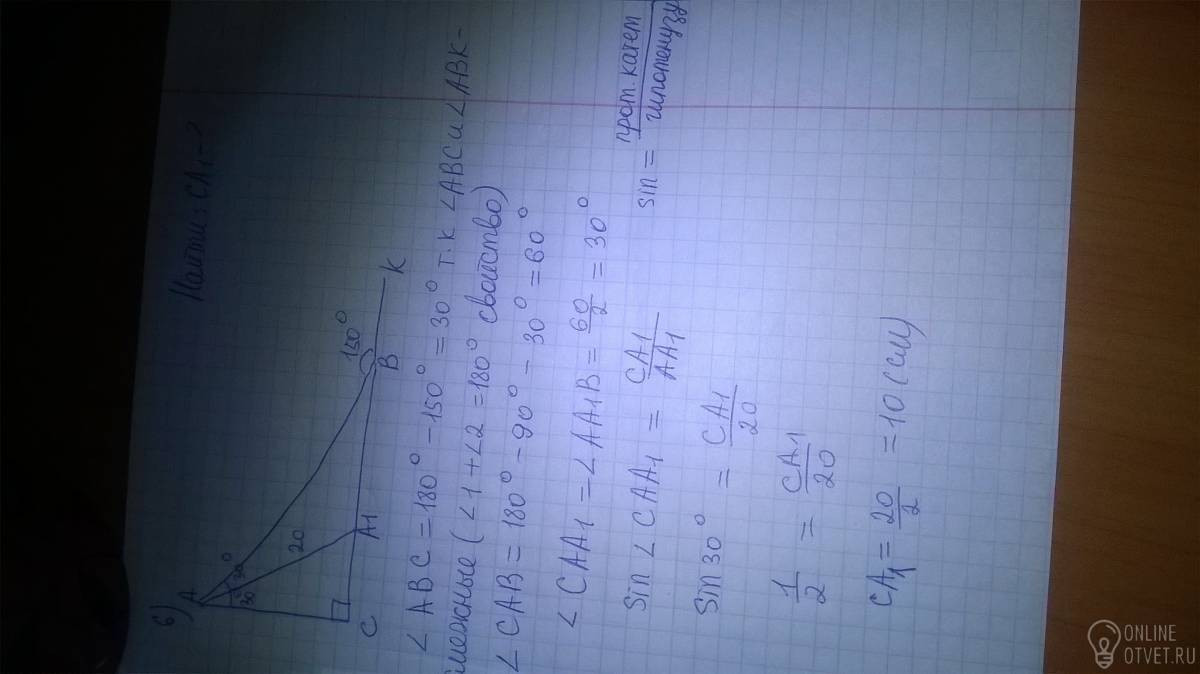 6)
Найти: CA₁-?
A
30
30°
20
150°
C
A1
B
K
∠ABC = 180° - 150° = 30° т.к ∠ABC и ∠ABK -
смежные (∠1 + ∠2 = 180° свойство)
∠CAB = 180° - 90° - 30° = 60°
∠CAA1 = ∠AA1B = 60/2 = 30°
Sin∠CAA1 = CA1/AA1
sin = прот. катет/гипотенузу
Sin30° = CA1/20
1/2 = CA1/20
CA₁ = 20/2 = 10 (см)
ONLINE
OTVET.RU